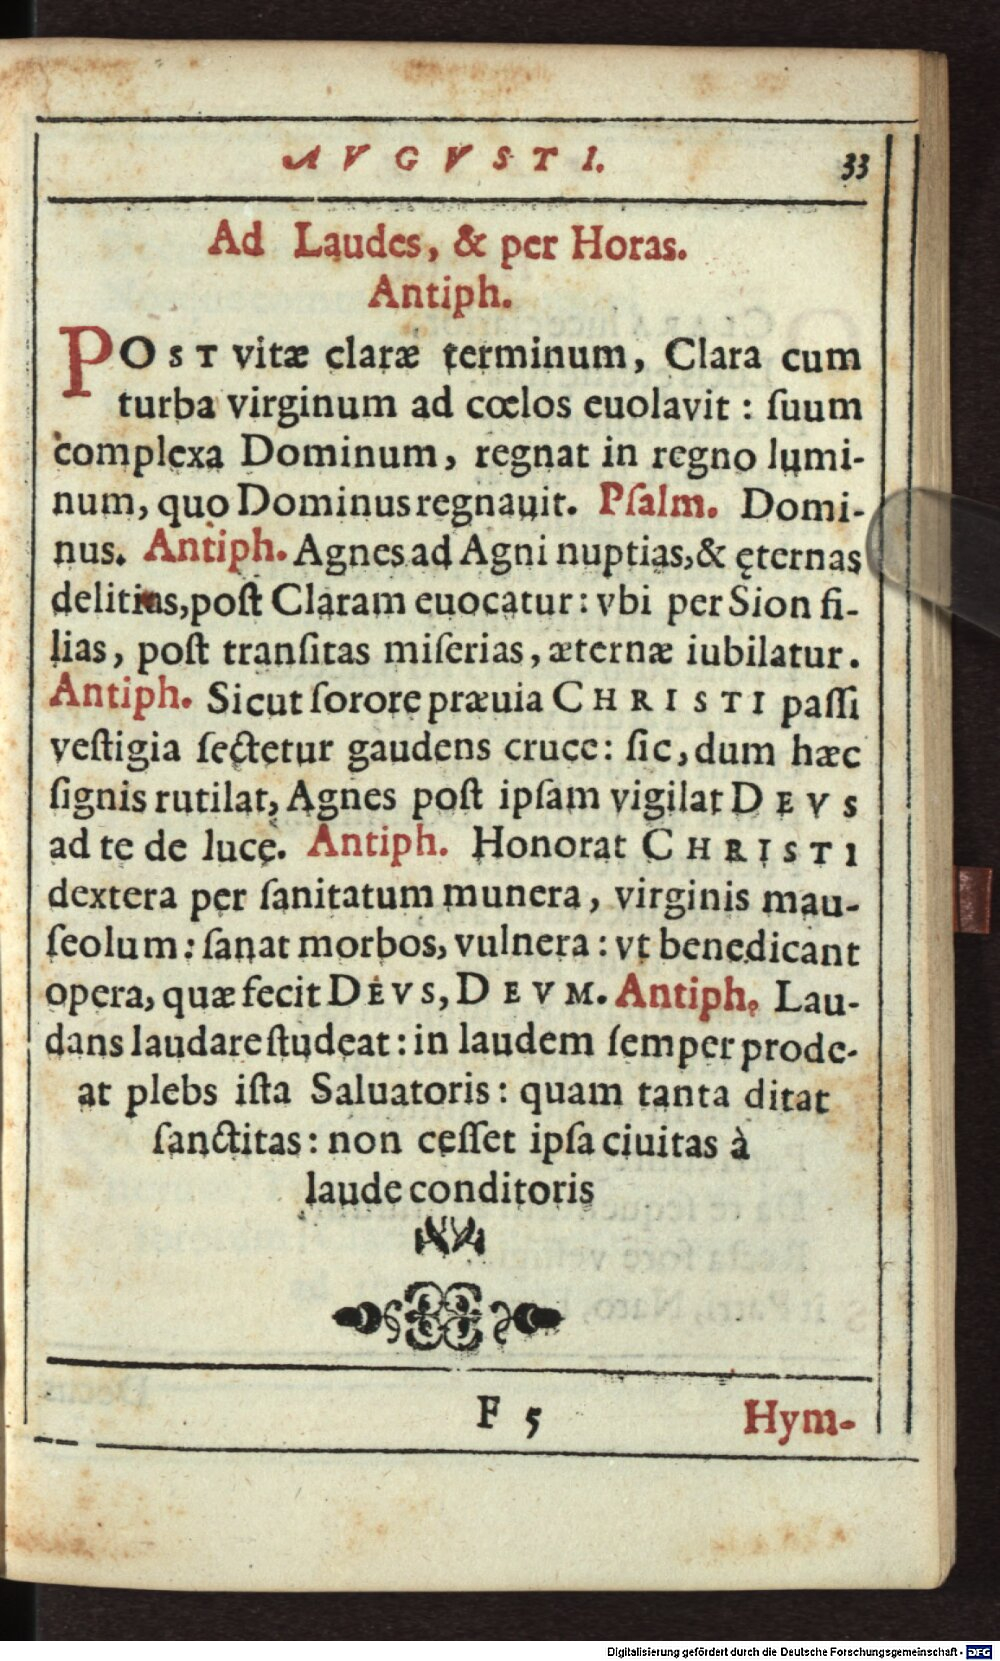 AVGVSTI. 33
Ad Laudes, & per Horas.
Antiph.
POST vitæ claræ terminum, Clara cum
turba virginum ad cœlos euolavit : ſuum
complexa Dominum, regnat in regno lumi-
num, quo Dominus regnauit. Pſalm. Domi-
nus. Antiph. Agnes ad Agni nuptias, & ęternas
delitias, poſt Claram euocatur : vbi per Sion fi-
lias, poſt tranſitas miſerias, æternæ iubilatur.
Antiph. Sicut ſorore præuia CHRISTI paſſi
veſtigia ſectetur gaudens cruce : ſic, dum hæc
ſignis rutilat, Agnes poſt ipſam vigilat DEVS
ad te de luce. Antiph. Honorat CHRISTI
dextera per ſanitatum munera, virginis mau-
ſeolum : ſanat morbos, vulnera : vt benedicant
opera, quæ fecit DEVS, DEVM. Antiph. Lau-
dans laudare ſtudeat : in laudem ſemper prode-
at plebs iſta Saluatoris : quam tanta ditat
ſanctitas : non ceſſet ipſa ciuitas à
laude conditoris
F 5 Hym-
Digitalisierung gefördert durch die Deutsche Forschungsgemeinschaft - DFG